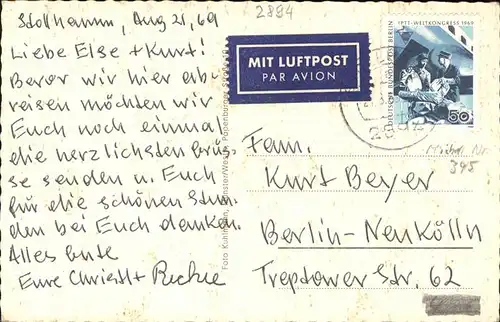 Stollhamm, Aug 21, 69
Liebe Else + Kurt!
Bevor wir hier ab-
reisen möchten wir
Euch noch einmal
die herzlichsten Grüs-
se senden u. Euch
für die schönen Stun-
den bei Euch danken.
Alles Gute
Eure Christl +
2894
MIT LUFTPOST
PAR AVION
PTTI-WELTKONGRESS 1969
DEUTSCHE BUNDESPOST BERLIN
50
Michel Nr.
345
Fam.
Kurt Beyer
Berlin-Neukölln
Treptower Str. 62